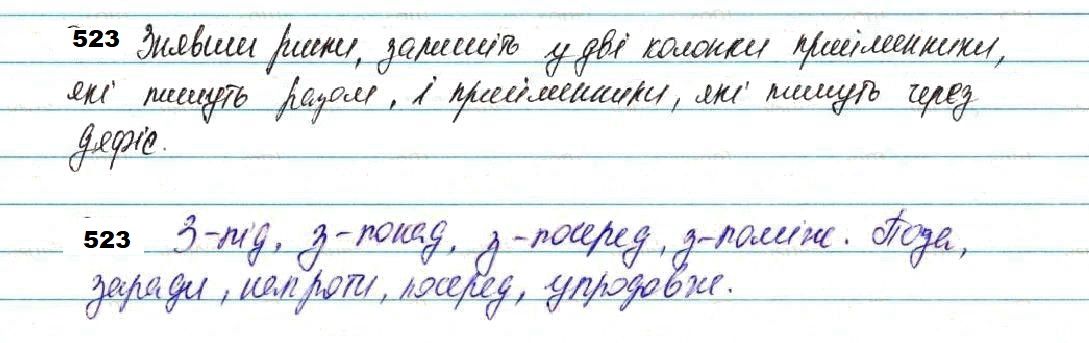 523 Знявши риски, запишіть у дві колонки прийменники,
які пишуть разом, і прийменники, які пишуть через
дефіс.
523 З-під, з-понад, з-посеред, з-поміж. Поза,
заради, навпроти, посеред, упродовж.